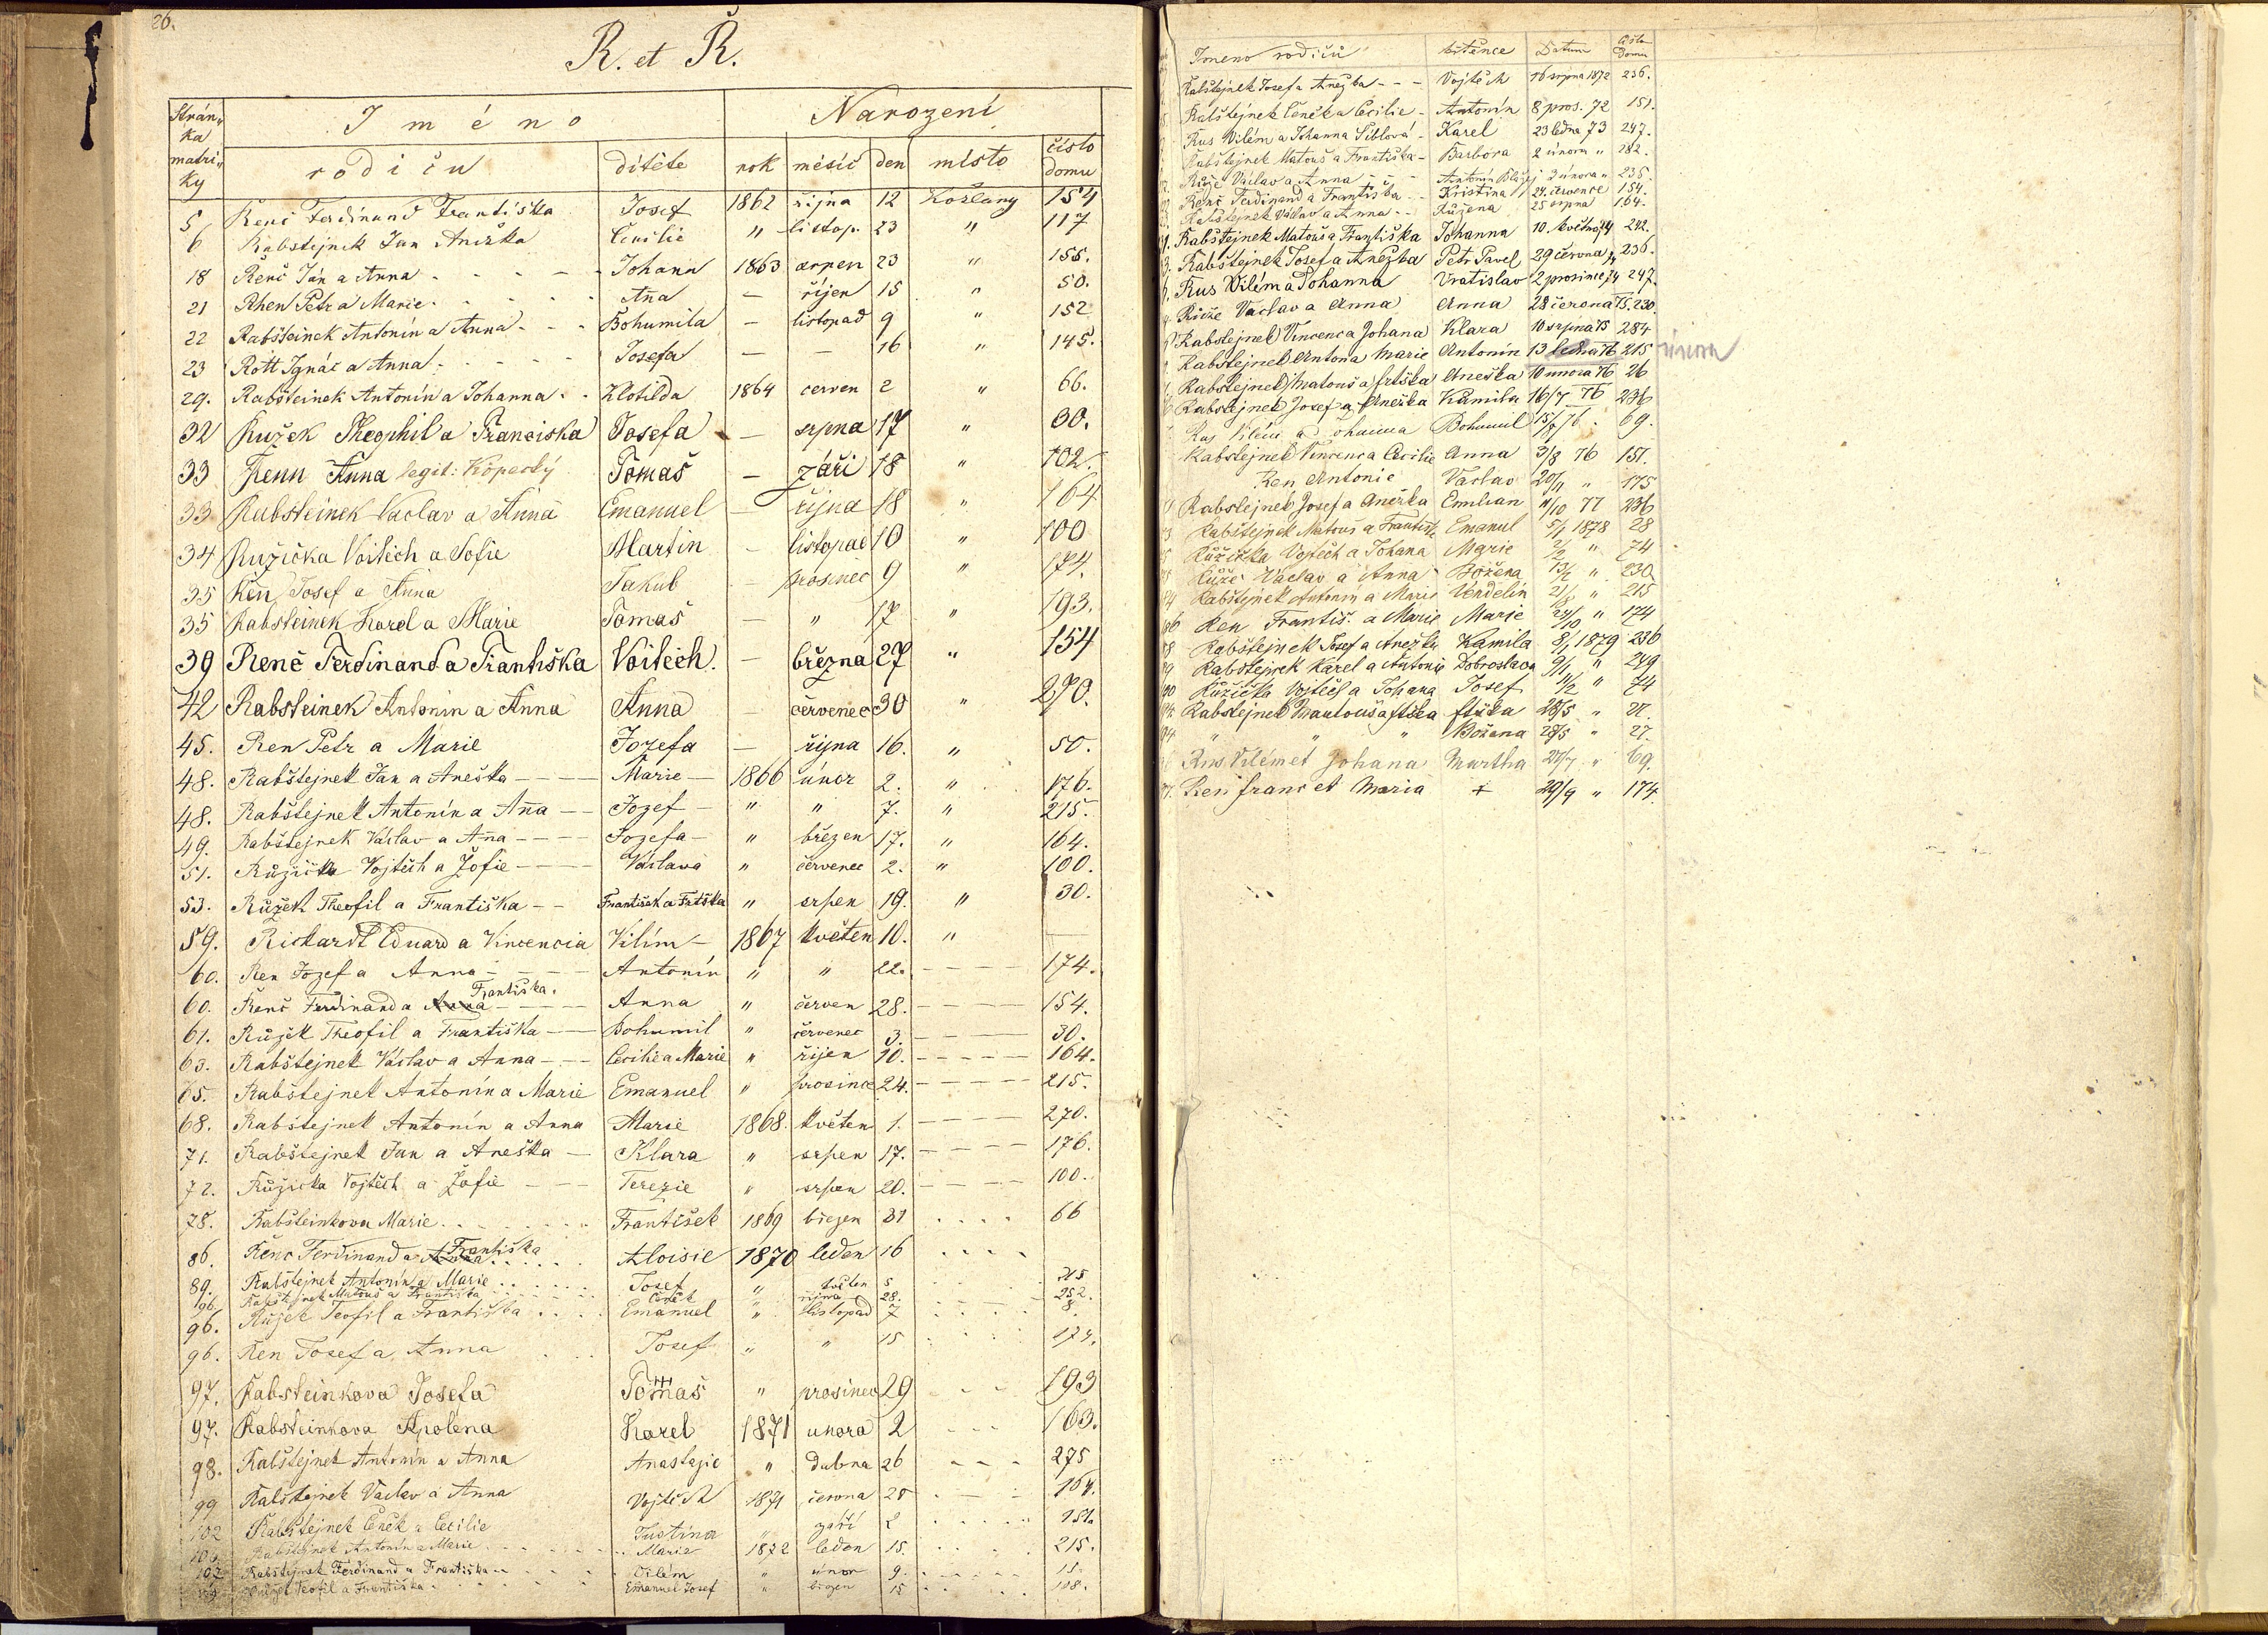 26.
R. et Ř.
Strán„ka matri„ky Jméno rodičů dítěte Narození rok měsíc den místo číslo domu
5 Renč Ferdinand Františka Josef 1862 října 12 Kožlany 154
6 Rabštejnek Jan Anežka Cecilie " listop. 23 " 117
18 Řenč Ján a Anna Johann 1863 srpen 23 " 155.
21 Rhen Petr a Marie Aña — říjen 15 " 50.
22 Rabšteinek Antonín a Anna Bohumila — listopad 9 " 152
23 Rott Ignác a Anna Josefa — — 16 " 145.
29. Rabšteinek Antonín a Johanna Klotilda 1864 červen 2 " 66.
32 Ružek Theophil a Franciska Josefa — srpna 17 " 30.
33 Renn Anna legit: Kopecký Tomaš — září 18 " 102.
33 Rabsteinek Vaclav a Anna Emanuel — října 18 " 164
34 Ružička Voitěch a Sofie Martin — listopad 10 " 100
35 Ren Josef a Anna Jakub — prosinec 9 " 174.
35 Rabsteinek Karel a Marie Tomaš — " 17 " 193.
39 Renč Ferdinand a Františka Voitěch. — března 27 " 154
42 Rabsteinek Antonín a Anna Anna — červenec 30 " 270.
45. Ren Petr a Marie Jozefa — října 16. " 50.
48. Rabštejnek Jan a Aneška Marie 1866 únor 2. " 176.
48. Rabštejnek Antonín a Aña Jozef " " 7. " 215.
49. Rabštejnek Václav a Aña Jozefa " březen 17. " 164.
51. Růžička Vojtěch a Žofie Václava " červenec 2. " 100.
53. Růžek Theofil a Františka František a Frtška " srpen 19. " 30.
59. Richardt Eduard a Vincencia Vilím 1867 květen 10. "
60. Ren Jozef a Anna Antonín " " 22. 174.
60. Řenč Ferdinand a Anna Františka. Anna " červen 28. 154.
61. Růžek Theofil a Františka Bohumil " červenec 3. 30.
63. Rabštejnek Václav a Anna Cecilie a Marie " říjen 10. 164.
65. Rabštejnek Antonín a Marie Emanuel " prosince 24. 215.
68. Rabštejnek Antonín a Anna Marie 1868. květen 1. 270.
71. Rabštejnek Jan a Aneška Klara " srpen 17. 176.
72. Růžička Vojtěch a Žofie Terezie " srpen 20. 100.
78. Rabšteinkova Marie František 1869 březen 31 66
86. Řenc Ferdinand a Anna Františka Aloisie 1870 leden 16
89. Rabštejnek Antonín a Marie Josef " květen 5 215
96. Rabštejnek Matouš a Františka Čeněk " října 28. 252.
96. Růžek Teofil a Františka Emanuel " listopad 7 8.
96. Ren Josef a Anna Josef " " 15 174.
97. Rabsteinkova Josefa Tomaš " prosinec 29 193
97. Rabsteinkova Apolena Karel 1871 unora 2 163.
98. Rabštejnek Antonín a Anna Anastazie " dubna 26 275
99 Rabštejnek Václav a Anna Vojtěch 1871 června 28 164.
102 Rabštejnek Čeněk a Cecilie Justina " září 2 151.
Rabštejnek Antonín a Marie Marie 1872 leden 15. 215.
102 Rabštejnek Ferdinand a Františka Vilém " únor 9.
Růžek Teofil a Františka Emanuel Josef " březen 15 108.
Jmeno rodičů dítěnce Datum Číslo Domu
Rabštejnek Josef a Anežka Vojtěch 16 srpna 1872 236.
Rabštejnek Čeněk a Cecilie Antonín 8 pros. 72 151.
Rus Vilém a Johanna Karel 23 ledna 73 247.
Rabštejnek Matouš a Františka Barbora 2 února " 282.
Růže Václav a Anna Antonín 2 února " 235.
Renč Ferdinand a Františka Kristina 24. července 154.
Rabštejnek Václav a Anna Růžena 25 srpna 164.
Rabštejnek Matouš a Františka Johanna 10. května 74 242.
Rabštejnek Josef a Anežka Petr Pavel 29 června 74 236.
Rus Vilém a Johanna Vratislav 2 prosince 74 247.
Růže Václav a Anna Anna 28 června 75. 230.
Rabstejnek Vincenc a Johana Klara 10 srpna 75 284
Rabstejnek Anton a Marie Antonín 13 ledna 76 215 února
Rabstejnek Matouš a frtška Aneška 10 unora 76 26
Rabstejnek Josef a Anežka Kamila 16/7 76 236
Rus Vilém a Johanna Bohumil 15/7 76 69.
Rabstejnek Vincenc a Cecilie Anna 3/8 76 151.
Ren Antonie Václav 20/11 " 175
Rabstejnek Josef a Anežka Emilian 11/10 77 236
Rabštejnek Matouš a Františk Emanuel 5/1 1878 28
Růžička Vojtěch a Johana Marie 2/2 " 74
Růže Václav a Anna Božena 13/2 " 230
Rabštejnek Antonín a Marie Vendelín " 215
Ren Františ. a Marie Marie 24/10 " 174
Rabštejnek Josef a Anežka Kamila 8/1 1879 236
Rabštejnek Karel a Antonie Dobroslava 9/1 " 249
Růžička Vojtěch a Johana Josef 11/2 " 74
Rabstejnek Mautouš a ftška ftška 28/5 " 27.
" " " Božena 28/5 " 27.
Rus Vilém et Johana Martha 24/7 " 69.
Ren Franc et Maria + 29/9 " 174.